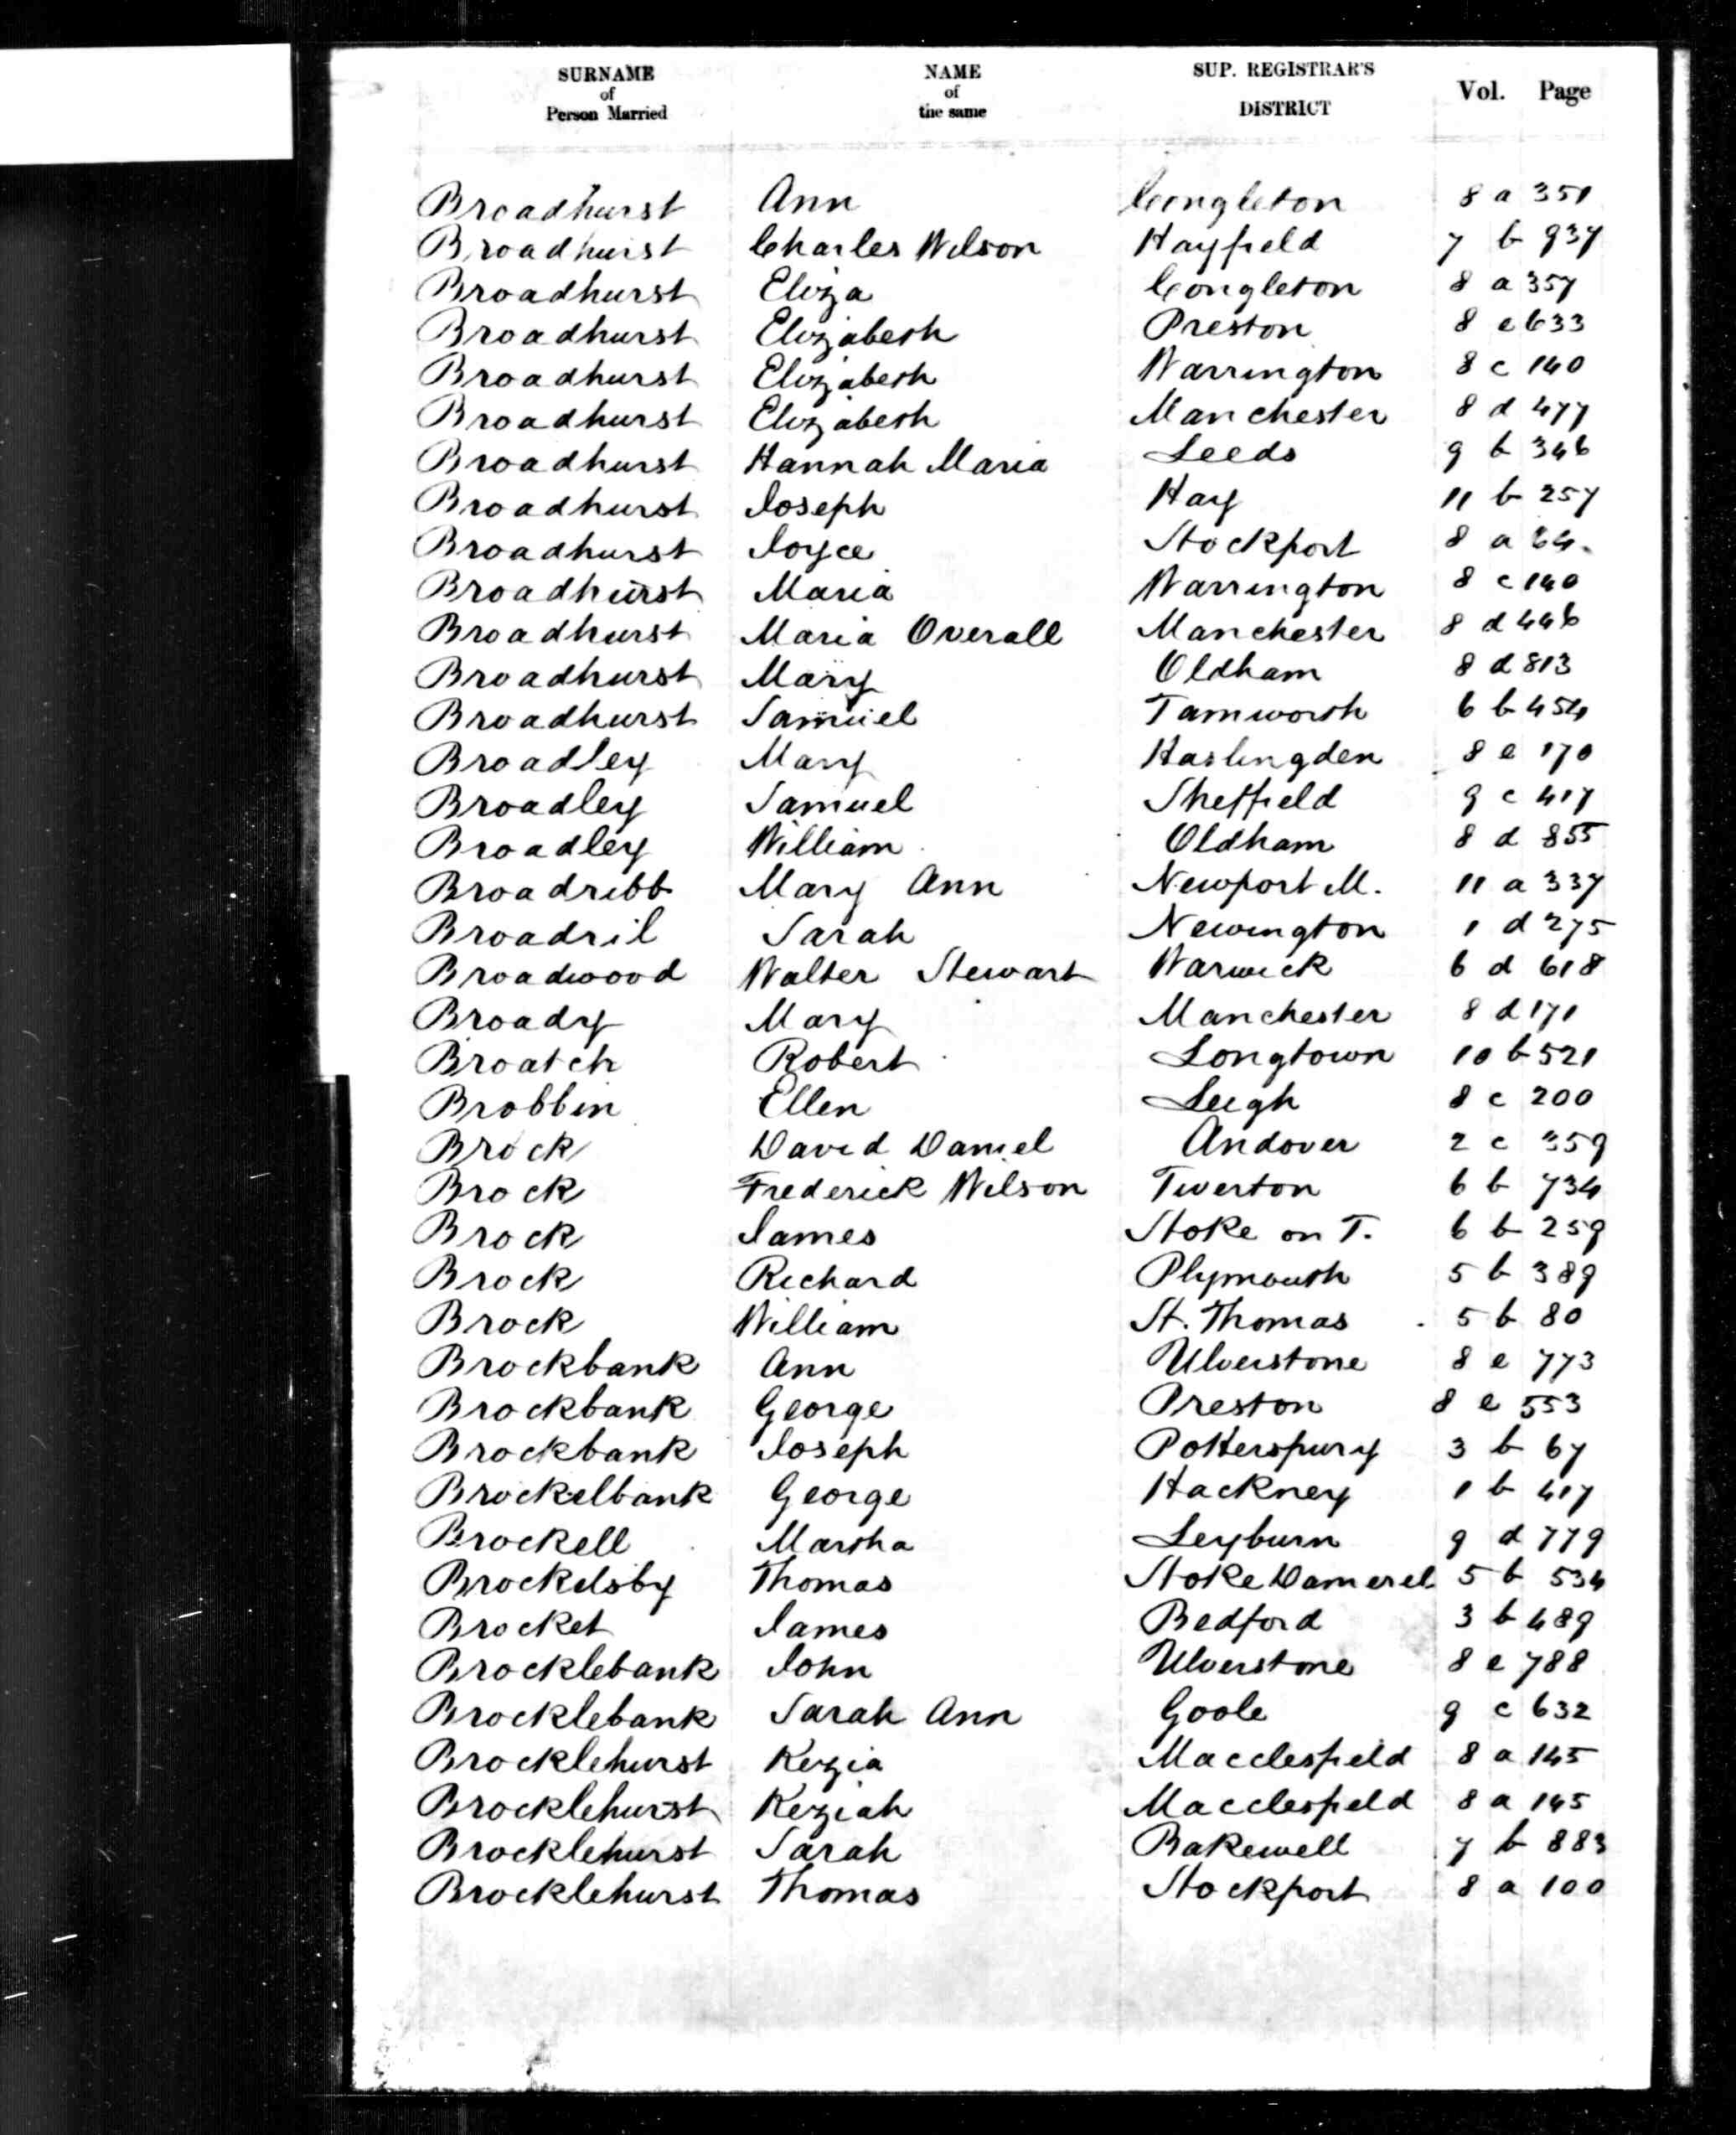 SURNAME of Person Married NAME of the same SUP. REGISTRAR'S DISTRICT Vol. Page
Broadhurst Ann Congleton 8 a 351
Broadhurst Charles Wilson Hayfield 7 b 937
Broadhurst Eliza Congleton 8 a 357
Broadhurst Elizabeth Preston 8 e 633
Broadhurst Elizabeth Warrington 8 c 140
Broadhurst Elizabeth Manchester 8 d 477
Broadhurst Hannah Maria Leeds 9 b 346
Broadhurst Joseph Hay 11 b 257
Broadhurst Joyce Stockport 8 a 64.
Broadhurst Maria Warrington 8 c 140
Broadhurst Maria Overall Manchester 8 d 446
Broadhurst Mary Oldham 8 d 813
Broadhurst Samuel Tamworth 6 b 454
Broadley Mary Haslingden 8 e 170
Broadley Samuel Sheffield 9 c 417
Broadley William Oldham 8 d 855
Broadribb Mary Ann Newport M. 11 a 337
Broadril Sarah Newington 1 d 275
Broadwood Walter Stewart Warwick 6 d 618
Broady Mary Manchester 8 d 171
Broatch Robert Longtown 10 b 521
Brobbin Ellen Leigh 8 c 200
Brock David Daniel Andover 2 c 359
Brock Frederick Wilson Tiverton 6 b 734
Brock James Stoke on T. 6 b 259
Brock Richard Plymouth 5 b 389
Brock William St. Thomas 5 b 80
Brockbank Ann Ulverstone 8 e 773
Brockbank George Preston 8 e 553
Brockbank Joseph Potterspury 3 b 67
Brockelbank George Hackney 1 b 417
Brockell Martha Leyburn 9 d 779
Brockelsby Thomas Stoke Damerel 5 b 534
Brocket James Bedford 3 b 489
Brocklebank John Ulverstone 8 e 788
Brocklebank Sarah Ann Goole 9 c 632
Brocklehurst Kezia Macclesfield 8 a 145
Brocklehurst Keziah Macclesfield 8 a 145
Brocklehurst Sarah Bakewell 7 b 883
Brocklehurst Thomas Stockport 8 a 100